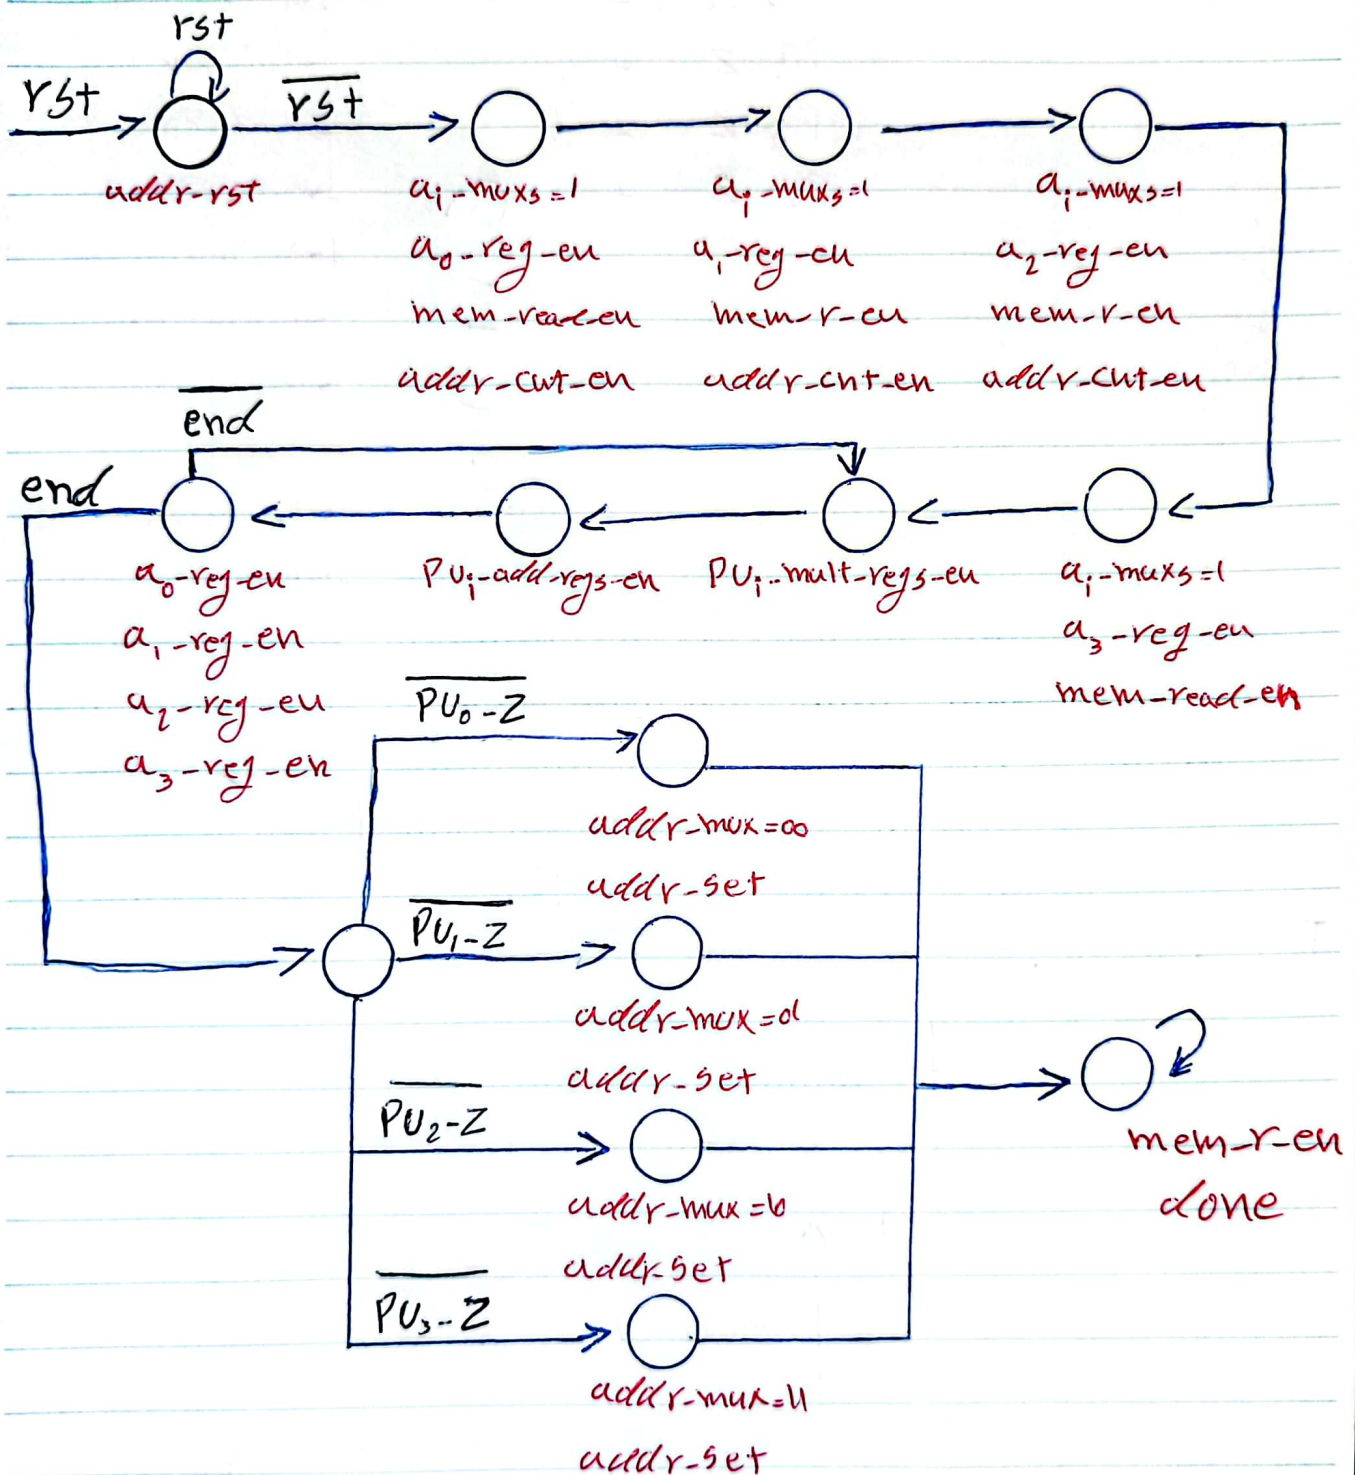 rst
rst
r̅s̅t̅
addr-rst
aᵢ-muxs=1
a₀-reg-en
mem-read-en
addr-cnt-en
aᵢ-muxs=1
a₁-reg-en
mem-r-en
addr-cnt-en
aᵢ-muxs=1
a₂-reg-en
mem-r-en
addr-cnt-en
e̅n̅d̅
end
a₀-reg-en
a₁-reg-en
a₂-reg-en
a₃-reg-en
PUᵢ-add-regs-en
PUᵢ-mult-regs-en
aᵢ-muxs=1
a₃-reg-en
mem-read-en
P̅U̅₀̅-̅Z̅
addr-mux=00
addr-set
P̅U̅₁̅-̅Z̅
addr-mux=01
addr-set
P̅U̅₂̅-̅Z̅
addr-mux=10
addr-set
P̅U̅₃̅-̅Z̅
addr-mux=11
addr-set
mem-r-en
done